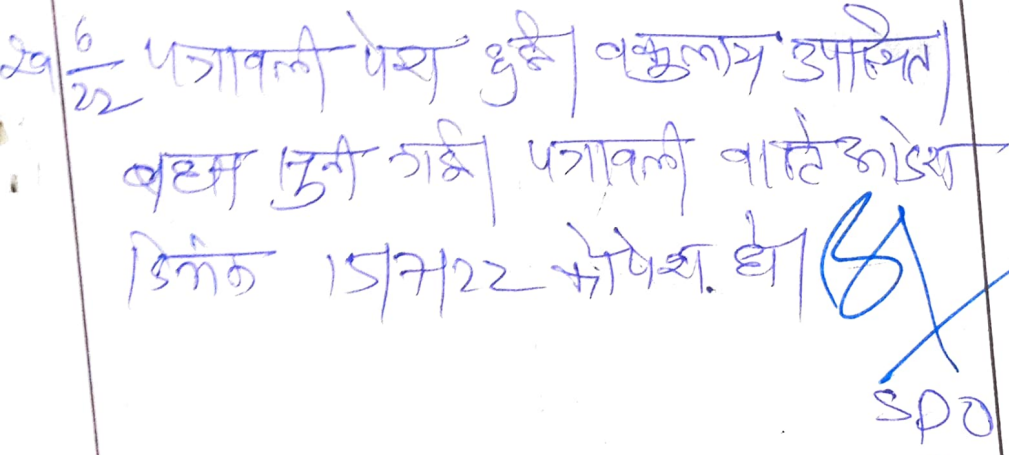 29/6/22 पत्रावली पेश हुई। वकुलाय उपस्थित।
बहस सुनी गई। पत्रावली वास्ते आदेश
दिनांक 15/7/22 को पेश. हो।
SDO